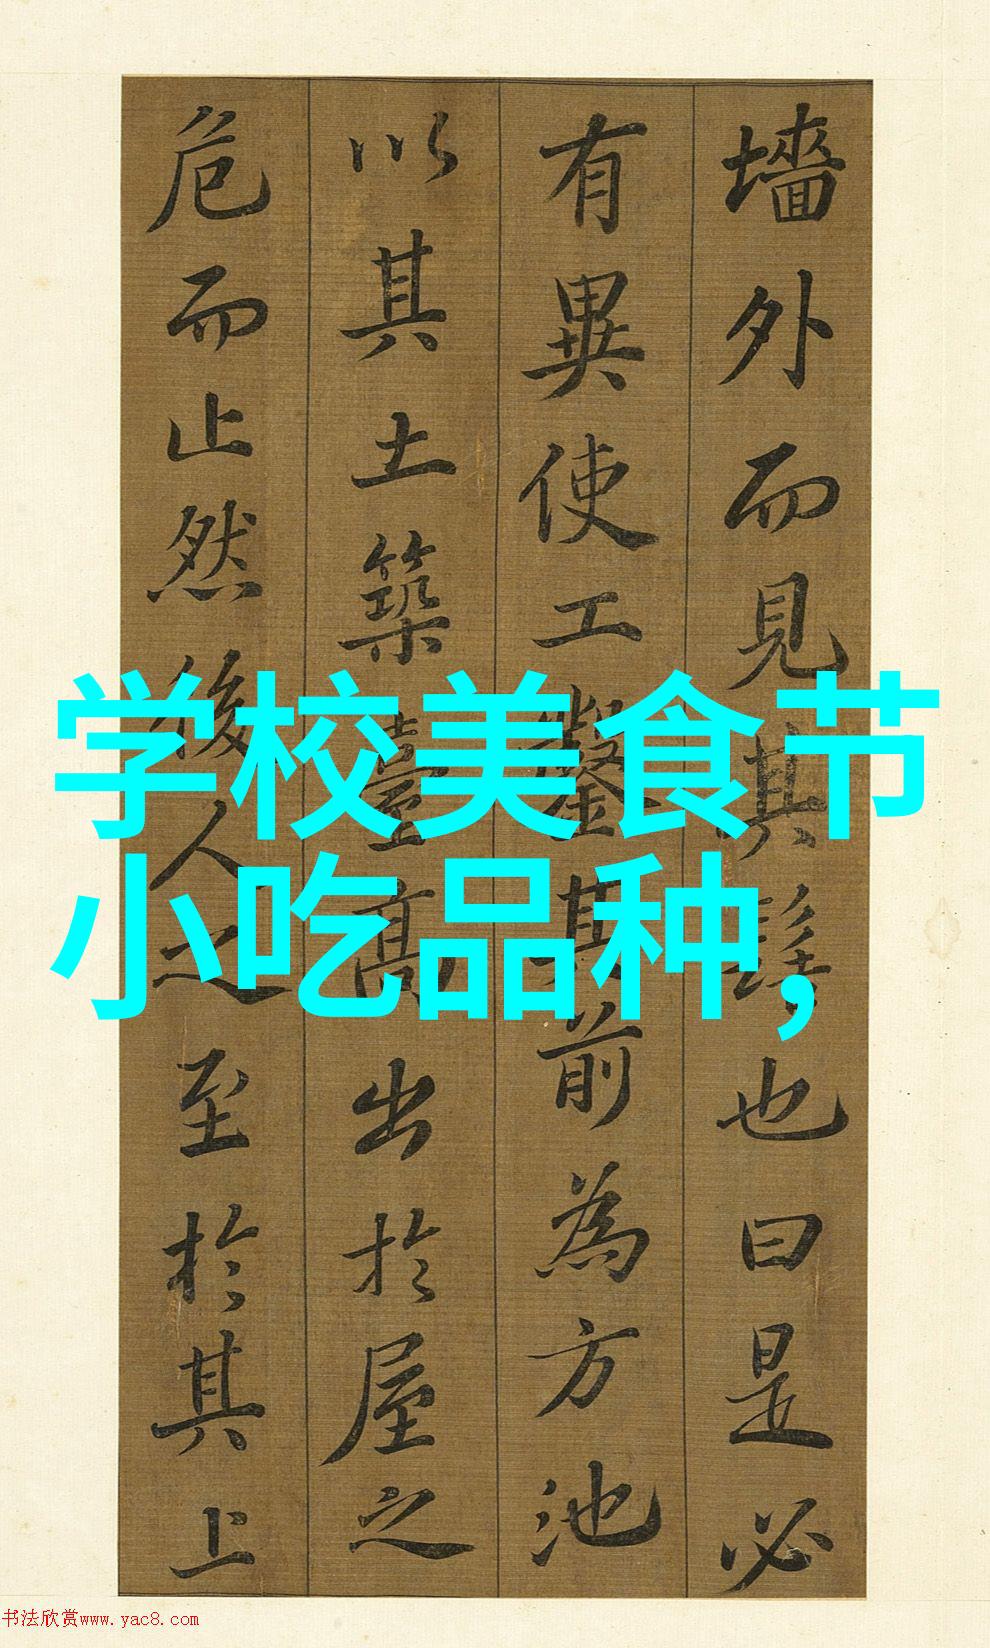 墻外而見其髻也曰是必
有異使工鑿其前為方池
以其土築臺高出於屋之
危而止然後人之至於其上
学校美食节
小吃品种,
书法欣赏www.yac8.com